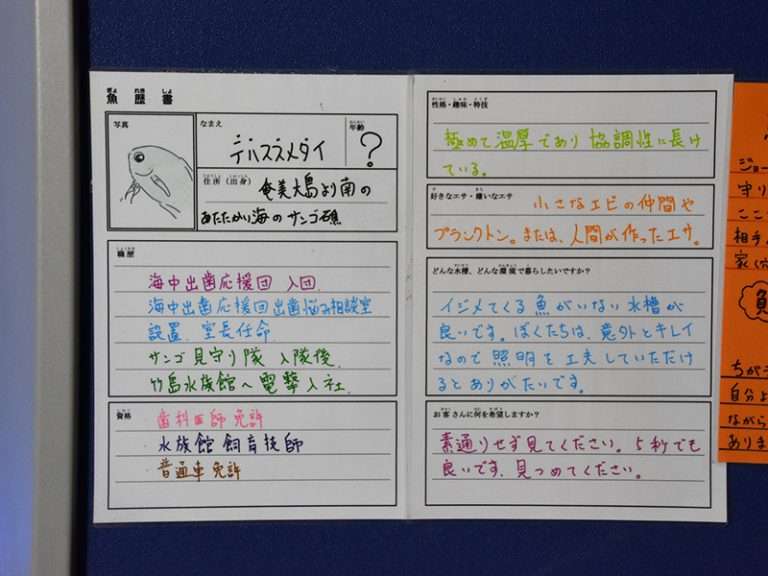 魚歴書
写真
なまえ
デバスズメダイ
年齢
?
住所(出身)
奄美大島より南の
あたたかい海のサンゴ礁
職歴
海中出歯応援団 入団.
海中出歯応援団出歯悩み相談室
設置. 室長任命
サンゴ見守り隊 入隊後.
竹島水族館へ電撃入社.
資格
歯科医師免許
水族館飼育技師
普通車免許
性格・趣味・特技
極めて温厚であり協調性に長け
ている。
好きなエサ・嫌いなエサ
小さなエビの仲間や
プランクトン。または、人間が作ったエサ。
どんな水槽、どんな環境で暮らしたいですか?
イジメてくる魚がいない水槽が
良いです。ぼくたちは、意外とキレイ
なので照明を工夫していただけ
るとありがたいです。
お客さんに何を希望しますか?
素通りせず見てください。5秒でも
良いです、見つめてください。
ジョー
守り
ここ
相手
自分よ
ながら
ありま